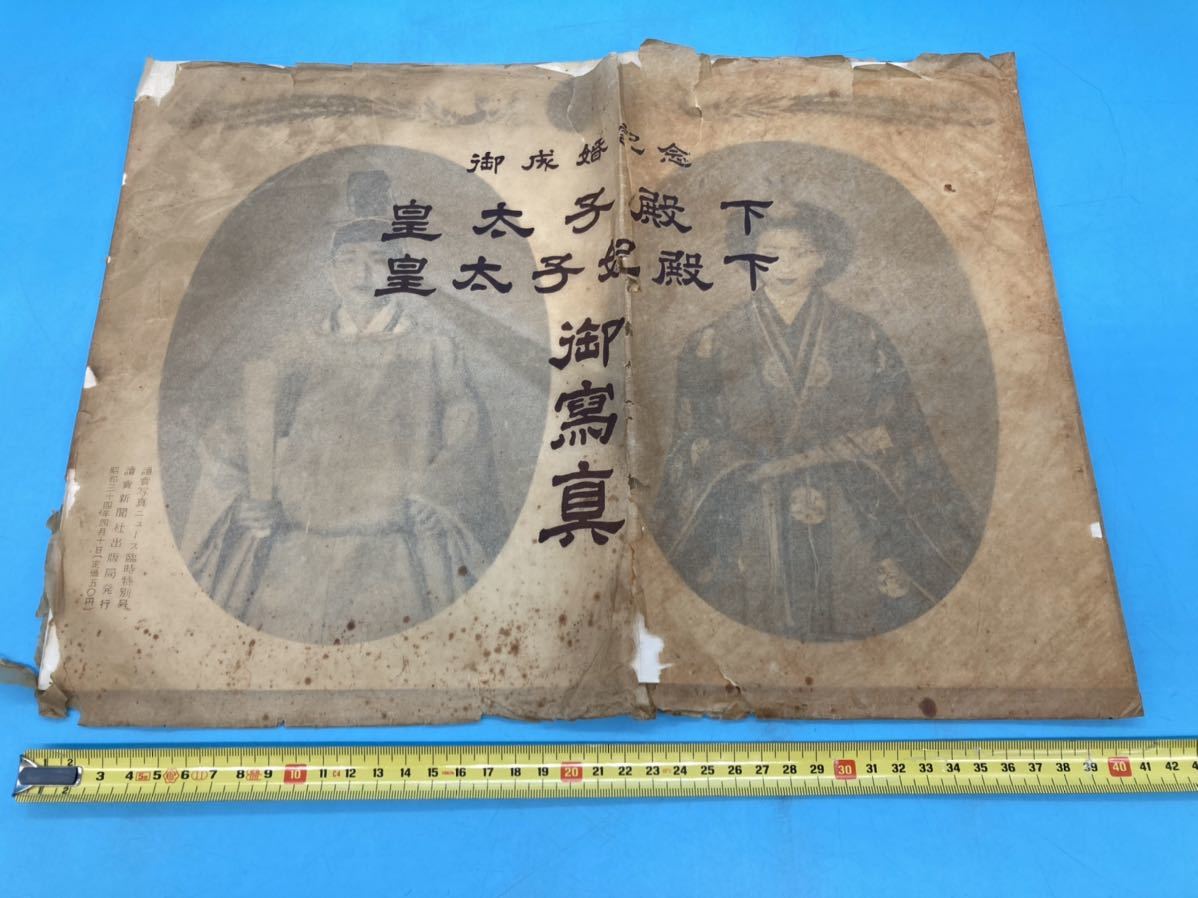 御成婚記念
皇太子殿下
皇太子妃殿下
御寫真
讀賣写真ニュース臨時特別号
讀賣新聞社出版局発行
昭和三十四年四月十日〔定価五〇円〕
3 4 5m 5 6 7 8 9 10 11 C4 12 13 14 15 16 17 18 19 20 21 22 23 24 25 26 27 28 29 30 31 32 33 34 35 36 37 38 39 40 41 42